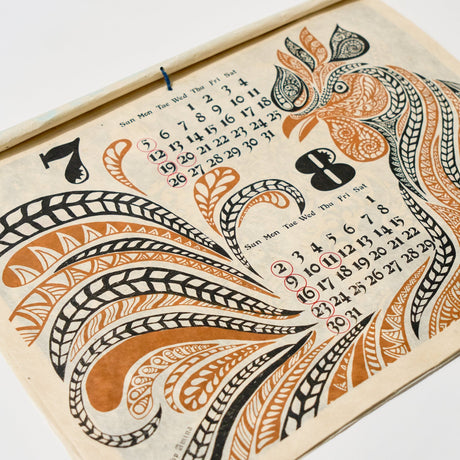 7
Sun Mon Tue Wed Thu Fri Sat
1 2 3 4
5 6 7 8 9 10 11
12 13 14 15 16 17 18
19 20 21 22 23 24 25
26 27 28 29 30 31
8
Sun Mon Tue Wed Thu Fri Sat
1
2 3 4 5 6 7 8
9 10 11 12 13 14 15
16 17 18 19 20 21 22
23 24 25 26 27 28 29
30 31